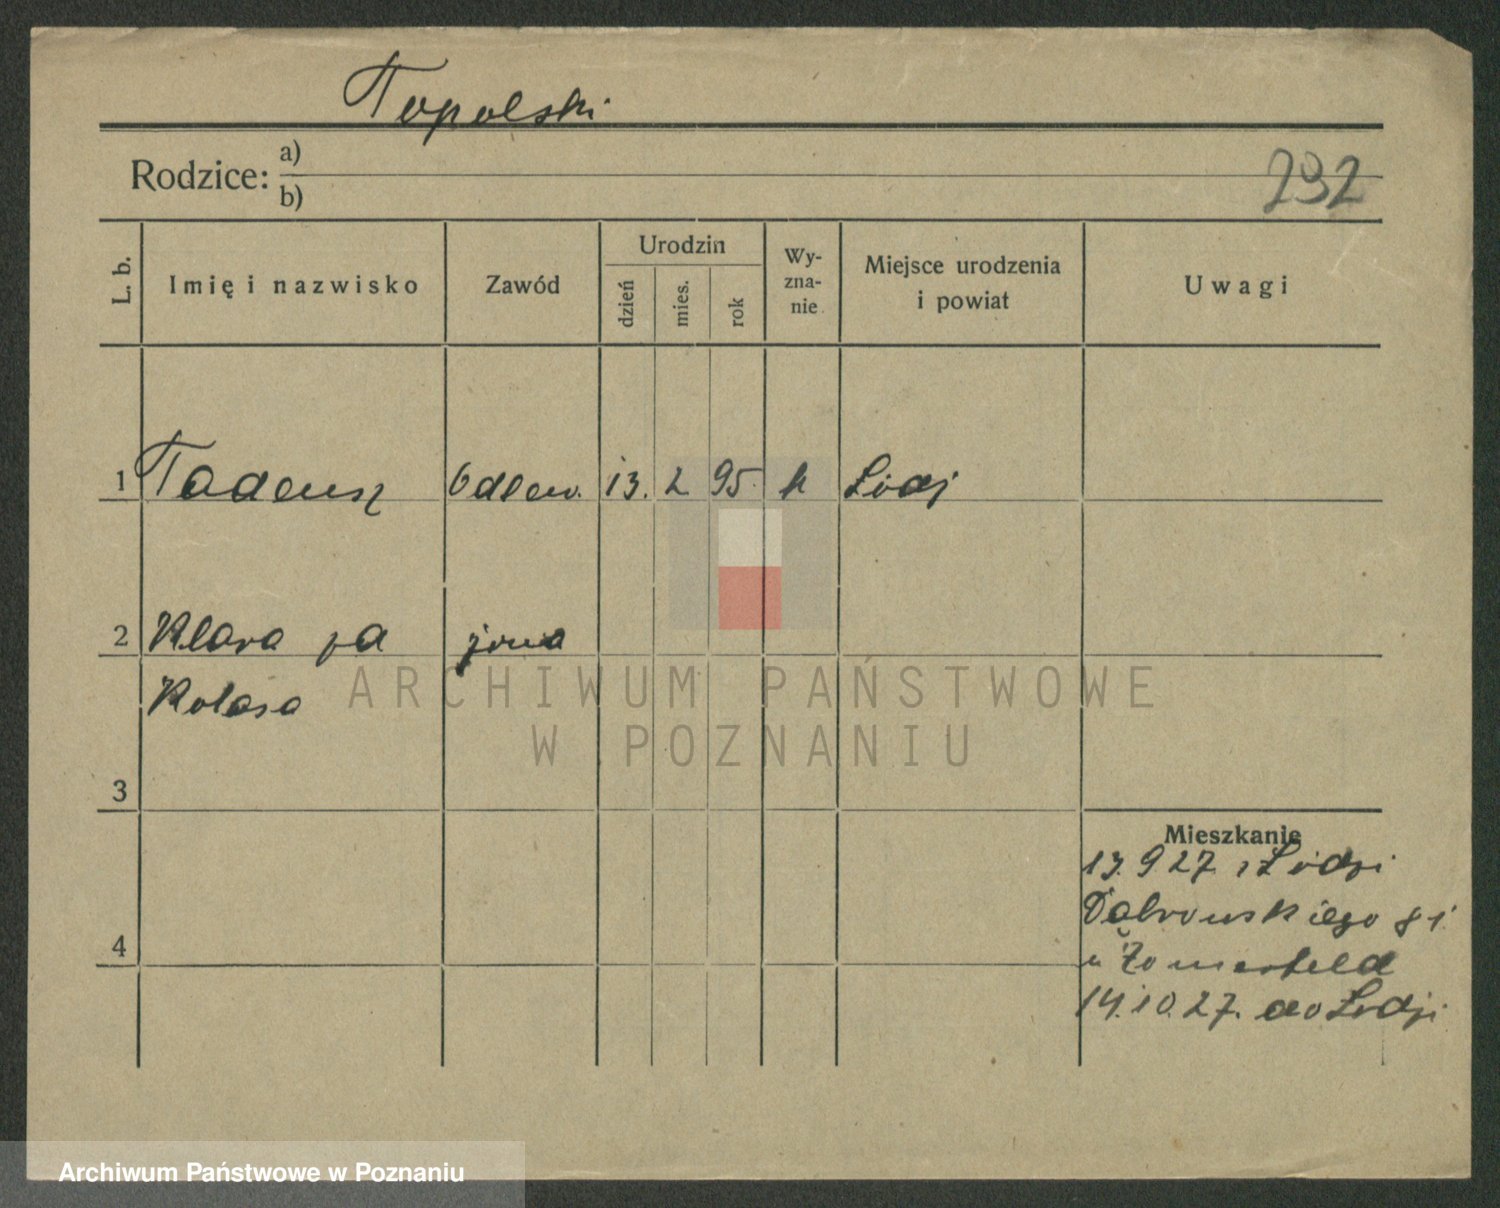 Topolski
Rodzice: a)
b)
292
L. b.
Imię i nazwisko
Zawód
Urodzin
dzień
mies.
rok
Wy-
zna-
nie
Miejsce urodzenia
i powiat
Uwagi
1 Tadeusz Odlew. 13. 2 95. k Łódź
2 Klara żona
Kolasa
3
Mieszkanie
13.9 27. z Łodzi
Dąbrowskiego 81.
u Zomerfeld
4
14.10.27. do Łodzi
ARCHIWUM PAŃSTWOWE
W POZNANIU
Archiwum Państwowe w Poznaniu